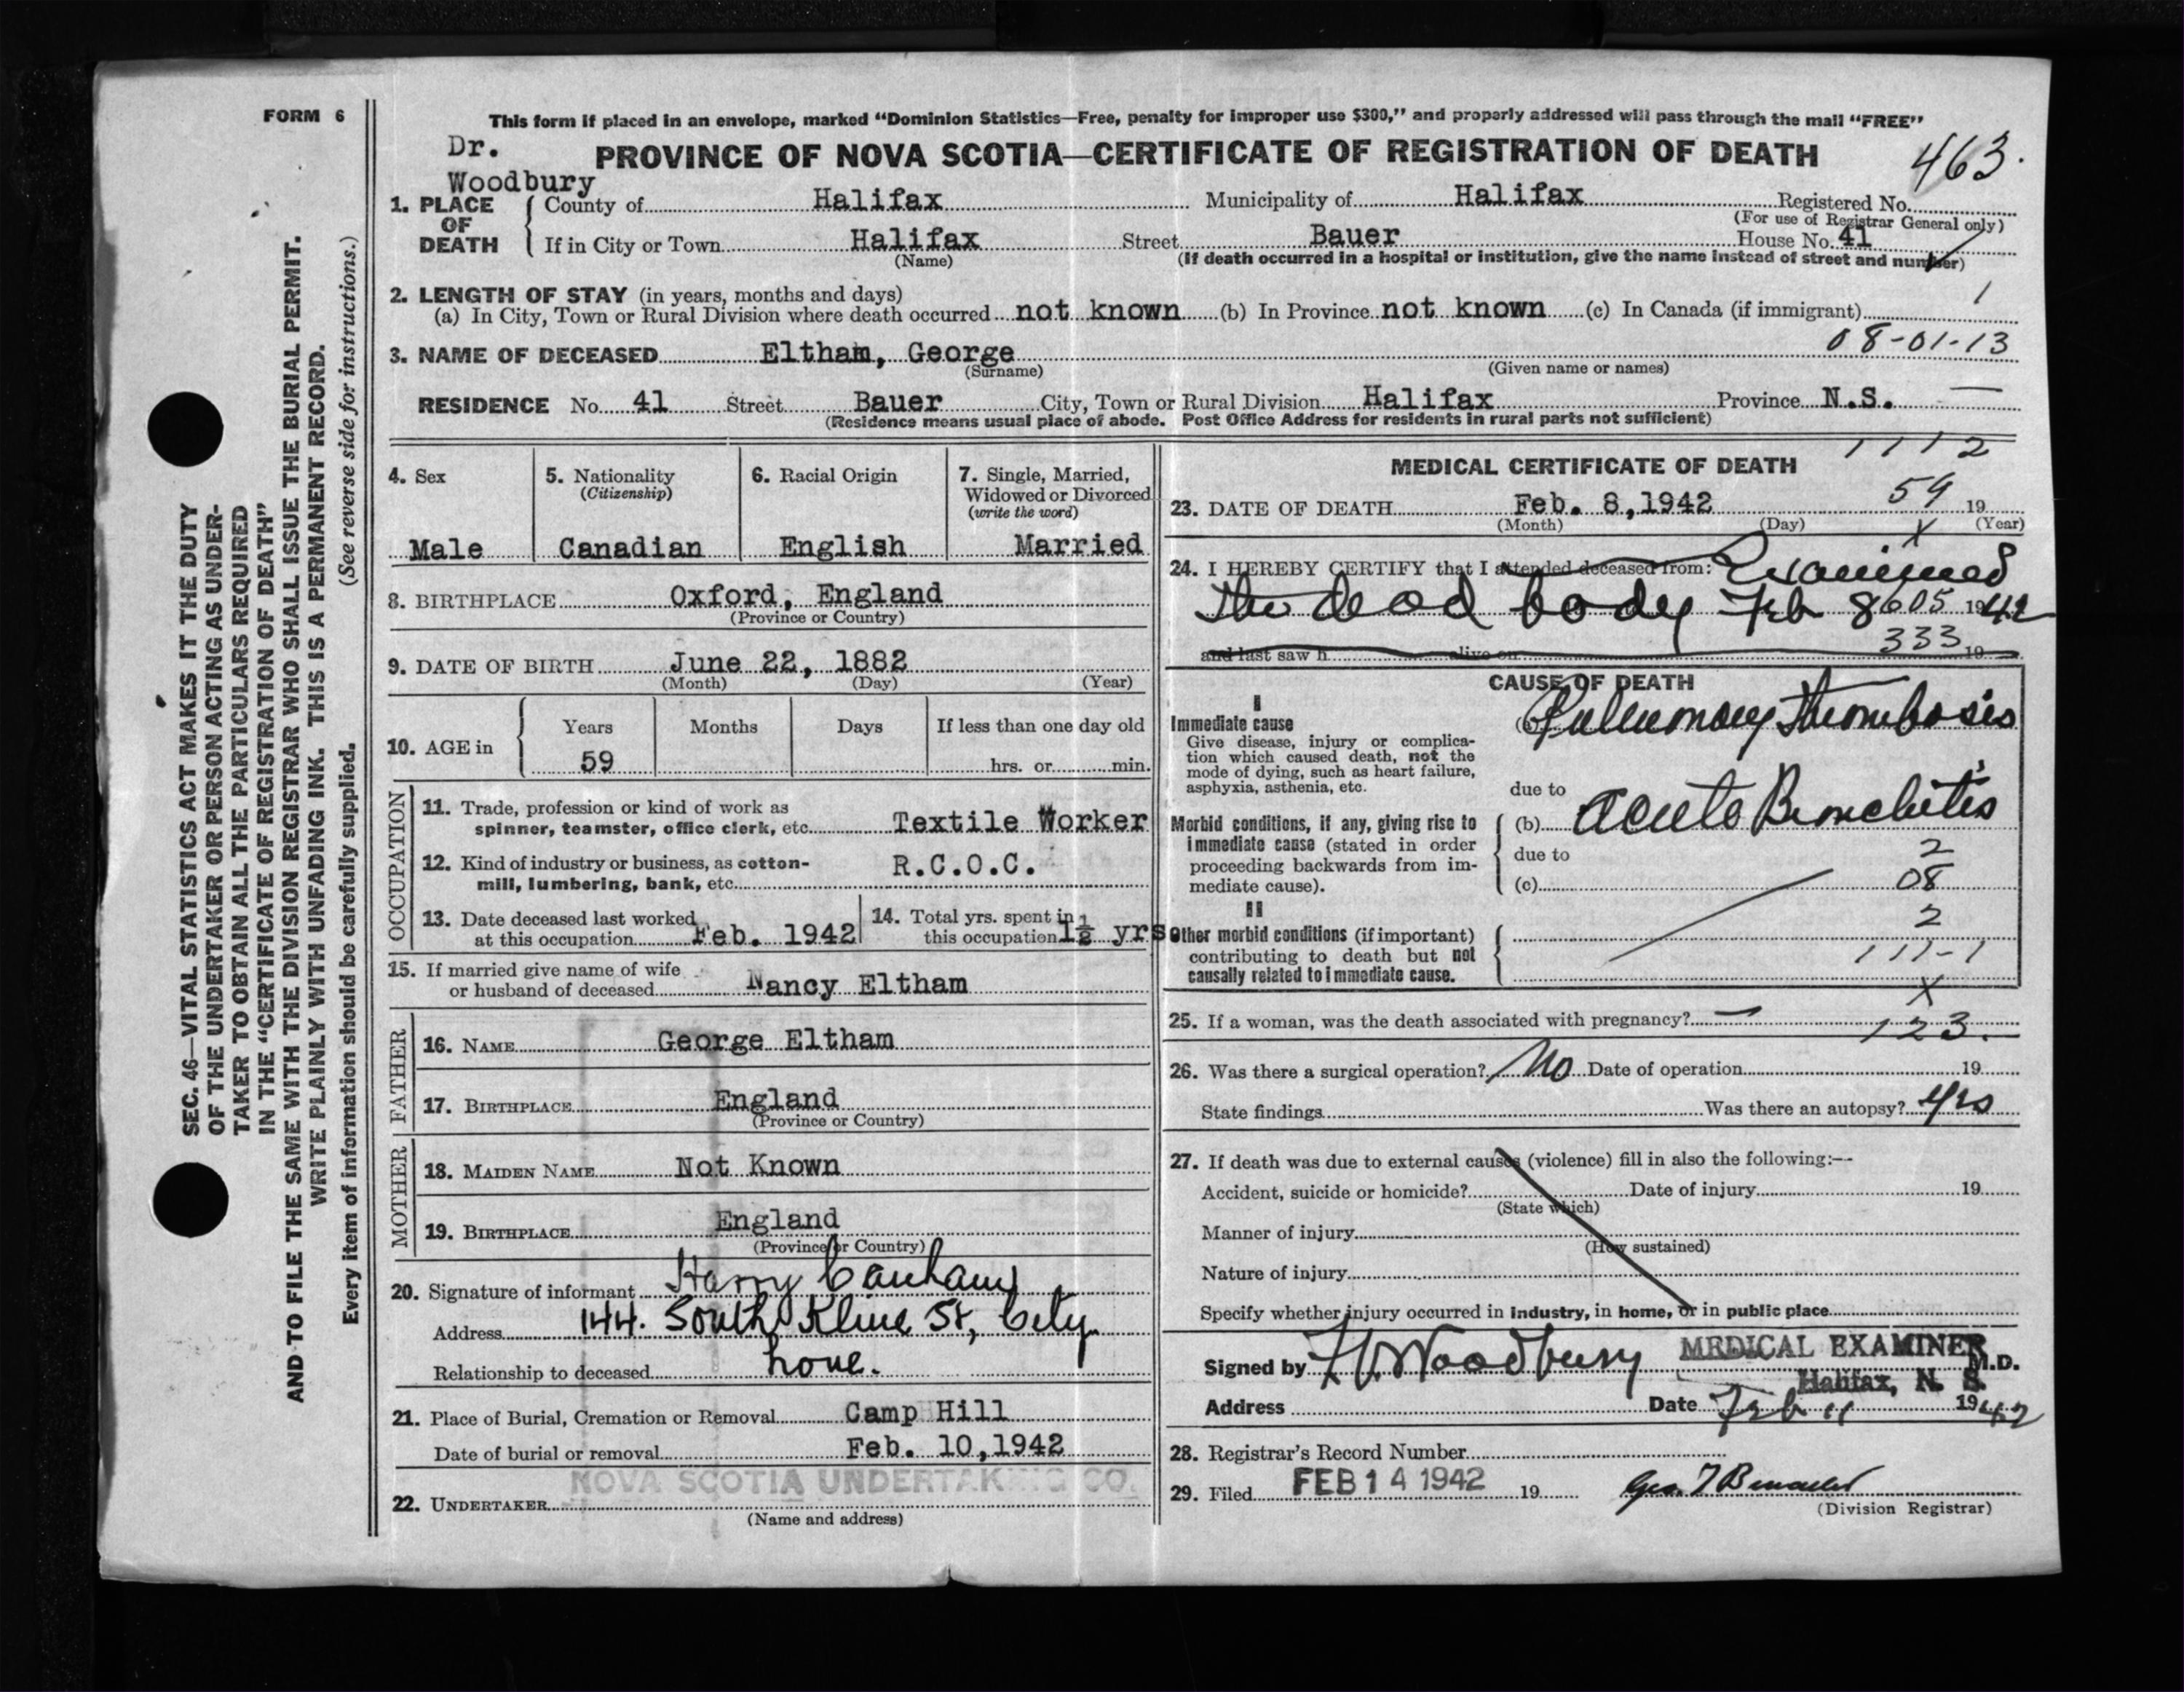 FORM 6
This form if placed in an envelope, marked “Dominion Statistics—Free, penalty for improper use $300,” and properly addressed will pass through the mail “FREE”
Dr.
Woodbury
PROVINCE OF NOVA SCOTIA—CERTIFICATE OF REGISTRATION OF DEATH
463.
1. PLACE OF DEATH
County of Halifax Municipality of Halifax Registered No.
(For use of Registrar General only)
If in City or Town Halifax Street Bauer House No. 41
(Name) (If death occurred in a hospital or institution, give the name instead of street and number)
2. LENGTH OF STAY (in years, months and days) 1
(a) In City, Town or Rural Division where death occurred not known (b) In Province not known (c) In Canada (if immigrant)
08-01-13
3. NAME OF DECEASED Eltham, George
(Surname) (Given name or names)
RESIDENCE No. 41 Street Bauer City, Town or Rural Division Halifax Province N.S. —
(Residence means usual place of abode. Post Office Address for residents in rural parts not sufficient)
4. Sex
Male
5. Nationality
(Citizenship)
Canadian
6. Racial Origin
English
7. Single, Married,
Widowed or Divorced
(write the word)
Married
8. BIRTHPLACE Oxford, England
(Province or Country)
9. DATE OF BIRTH June 22, 1882
(Month) (Day) (Year)
10. AGE in
Years Months Days If less than one day old
59 hrs. or min.
OCCUPATION
11. Trade, profession or kind of work as
spinner, teamster, office clerk, etc. Textile Worker
12. Kind of industry or business, as cotton-
mill, lumbering, bank, etc. R.C.O.C.
13. Date deceased last worked
at this occupation Feb. 1942
14. Total yrs. spent in
this occupation 1½ yrs
15. If married give name of wife
or husband of deceased Nancy Eltham
FATHER
16. NAME George Eltham
17. BIRTHPLACE England
(Province or Country)
MOTHER
18. MAIDEN NAME Not Known
19. BIRTHPLACE England
(Province or Country)
20. Signature of informant Harry Canham
Address 144. South Kline St, City
Relationship to deceased none.
21. Place of Burial, Cremation or Removal Camp Hill
Date of burial or removal Feb. 10,1942
NOVA SCOTIA UNDERTAKING CO.
22. UNDERTAKER
(Name and address)
1112
MEDICAL CERTIFICATE OF DEATH
59
23. DATE OF DEATH Feb. 8,1942 19
(Month) (Day) (Year)
x
24. I HEREBY CERTIFY that I attended deceased from: Examined
the dead body Feb 8 605 1942
333
and last saw h alive on 19
CAUSE OF DEATH
I
Immediate cause
Give disease, injury or complica-
tion which caused death, not the
mode of dying, such as heart failure,
asphyxia, asthenia, etc.
(a) Pulmonary Thrombosis
due to
Morbid conditions, if any, giving rise to
immediate cause (stated in order
proceeding backwards from im-
mediate cause).
(b) Acute Bronchitis
due to 2
(c) 08
II
2
Other morbid conditions (if important)
contributing to death but not
causally related to immediate cause.
111-1
x
25. If a woman, was the death associated with pregnancy? —
123.
26. Was there a surgical operation? No Date of operation 19
State findings Was there an autopsy? Yes
27. If death was due to external causes (violence) fill in also the following:--
Accident, suicide or homicide? Date of injury 19
(State which)
Manner of injury
(How sustained)
Nature of injury
Specify whether injury occurred in industry, in home, or in public place
Signed by Woodbury MEDICAL EXAMINER M.D.
Halifax, N. S.
Address Date Feb 11 1942
28. Registrar's Record Number
29. Filed FEB 14 1942 19
(Division Registrar)
SEC. 46—VITAL STATISTICS ACT MAKES IT THE DUTY
OF THE UNDERTAKER OR PERSON ACTING AS UNDER-
TAKER TO OBTAIN ALL THE PARTICULARS REQUIRED
IN THE “CERTIFICATE OF REGISTRATION OF DEATH”
AND TO FILE THE SAME WITH THE DIVISION REGISTRAR WHO SHALL ISSUE THE BURIAL PERMIT.
WRITE PLAINLY WITH UNFADING INK. THIS IS A PERMANENT RECORD.
Every item of information should be carefully supplied. (See reverse side for instructions.)